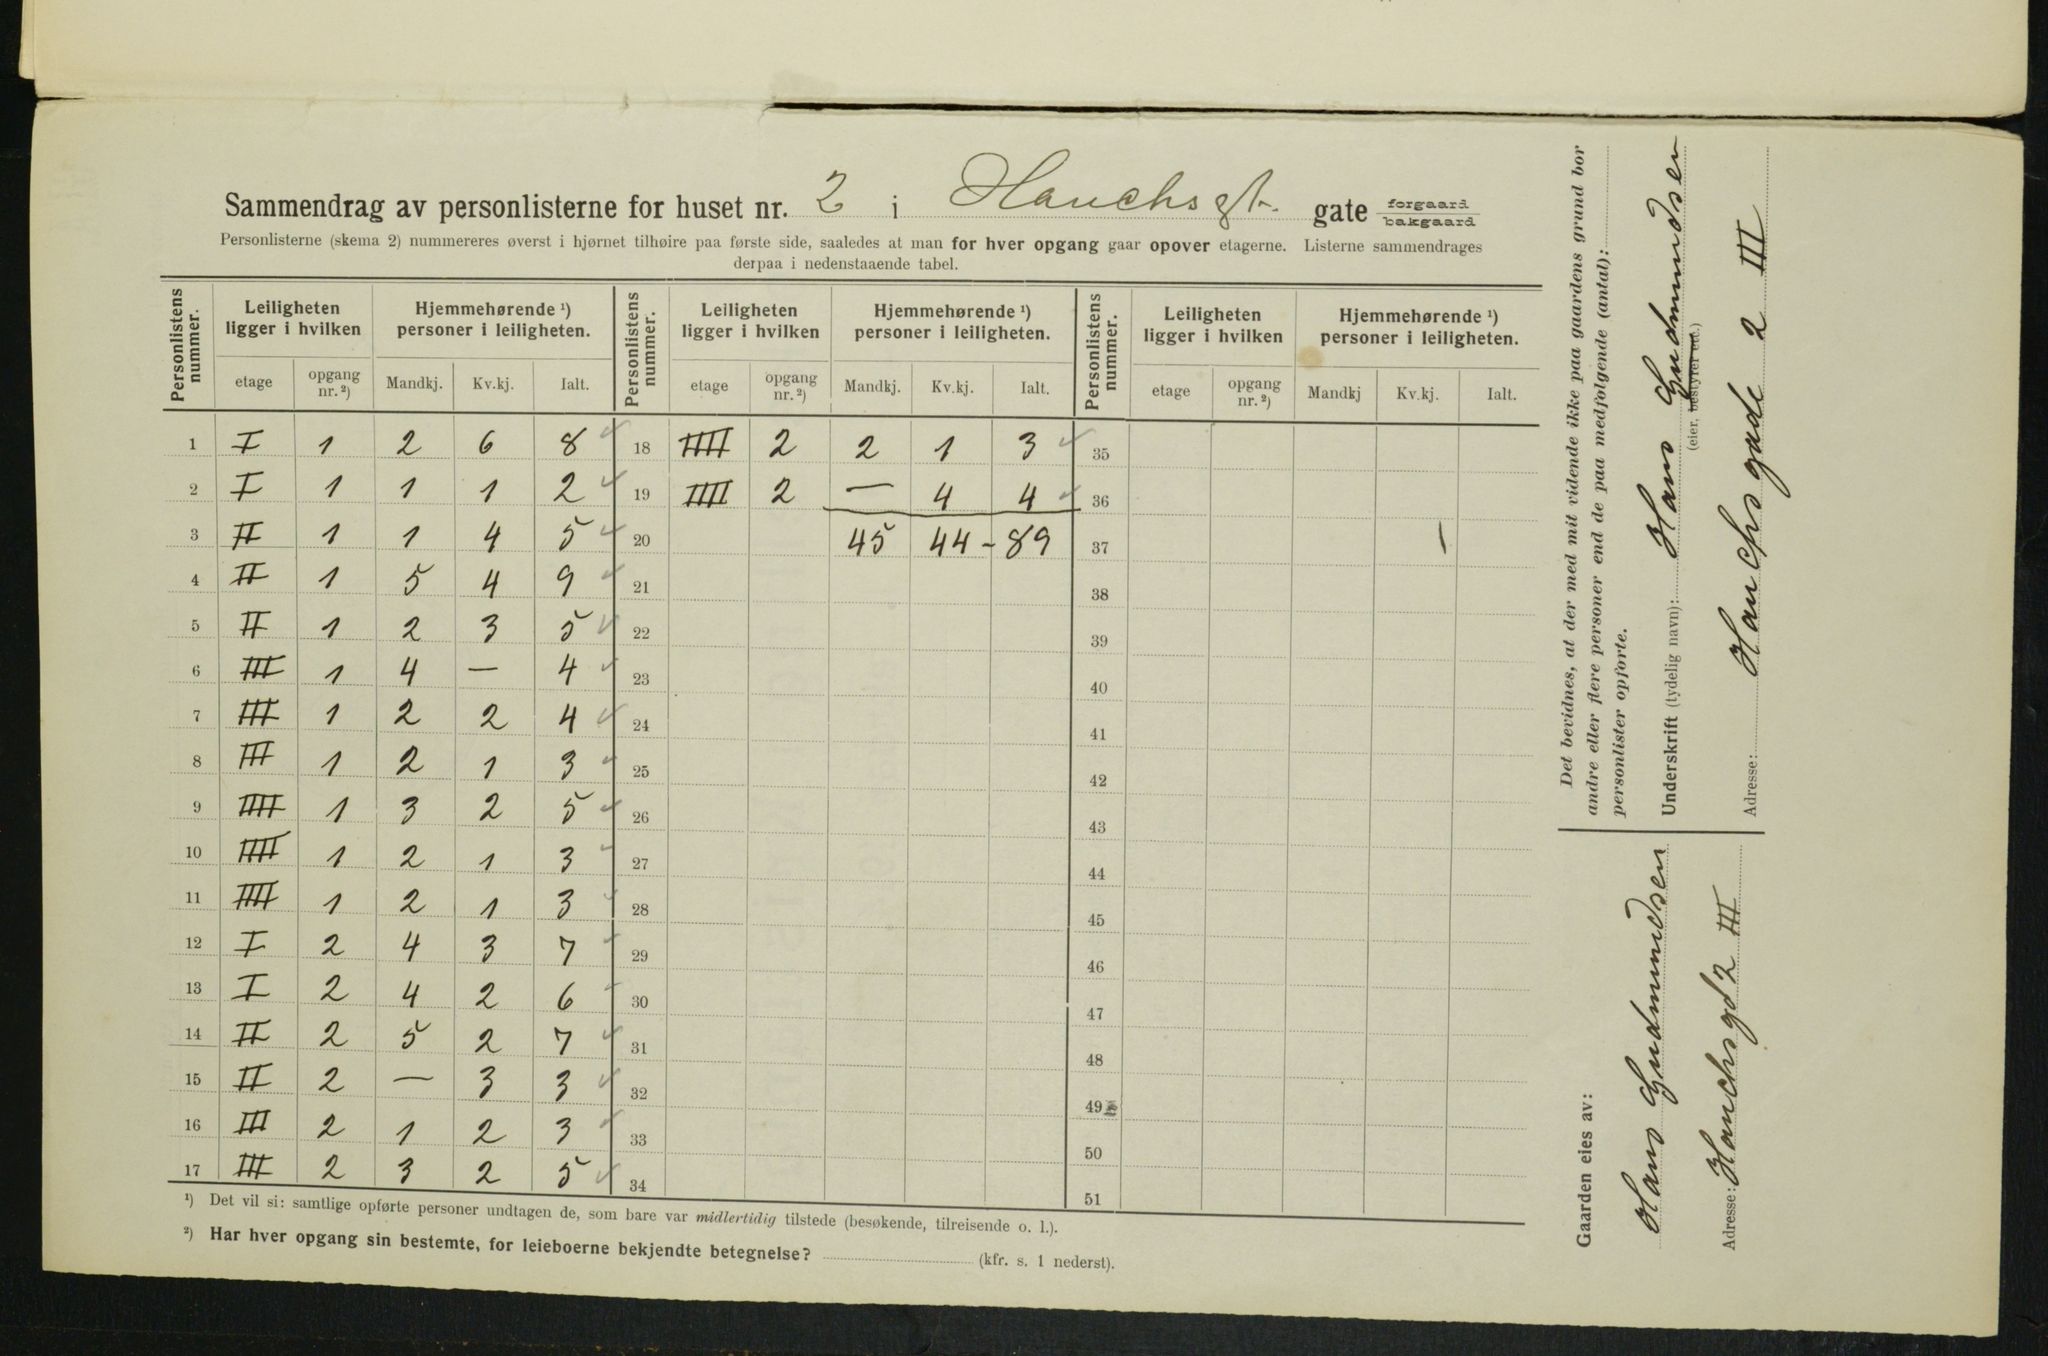 Sammendrag av personlisterne for huset nr. 2 i Hauchsgt. gate forgaard bakgaard
Personlisterne (skema 2) nummereres øverst i hjørnet tilhøire paa første side, saaledes at man for hver opgang gaar opover etagerne. Listerne sammendrages
derpaa i nedenstaaende tabel.
Personlistens nummer. Leiligheten ligger i hvilken Hjemmehørende ¹) personer i leiligheten. Personlistens nummer. Leiligheten ligger i hvilken Hjemmehørende ¹) personer i leiligheten. Personlistens nummer. Leiligheten ligger i hvilken Hjemmehørende ¹) personer i leiligheten.
etage opgang nr. ²) Mandkj. Kv.kj. Ialt. etage opgang nr. ²) Mandkj. Kv.kj. Ialt. etage opgang nr. ²) Mandkj Kv.kj. Ialt.
1 I 1 2 6 8 18 IIII 2 2 1 3 35
2 I 1 1 1 2 19 IIII 2 — 4 4 36
3 II 1 1 4 5 20 45 44 - 89 37
4 II 1 5 4 9 21 38
5 II 1 2 3 5 22 39
6 III 1 4 — 4 23 40
7 III 1 2 2 4 24 41
8 III 1 2 1 3 25 42
9 IIII 1 3 2 5 26 43
10 IIII 1 2 1 3 27 44
11 IIII 1 2 1 3 28 45
12 I 2 4 3 7 29 46
13 I 2 4 2 6 30 47
14 II 2 5 2 7 31 48
15 II 2 — 3 3 32 49
16 III 2 1 2 3 33 50
17 III 2 3 2 5 34 51
¹) Det vil si: samtlige opførte personer undtagen de, som bare var midlertidig tilstede (besøkende, tilreisende o. l.).
²) Har hver opgang sin bestemte, for leieboerne bekjendte betegnelse? (kfr. s. 1 nederst).
Det bevidnes, at der med mit vidende ikke paa gaardens grund bor
andre eller flere personer end de paa medfølgende (antal):
personlister opførte.
Underskrift (tydelig navn): Hans Gudmundsen
(eier, bestyrer etc.)
Adresse: Hauchsgade 2 III
Gaarden eies av:
Hans Gudmundsen
Adresse: Hauchsgd 2 III